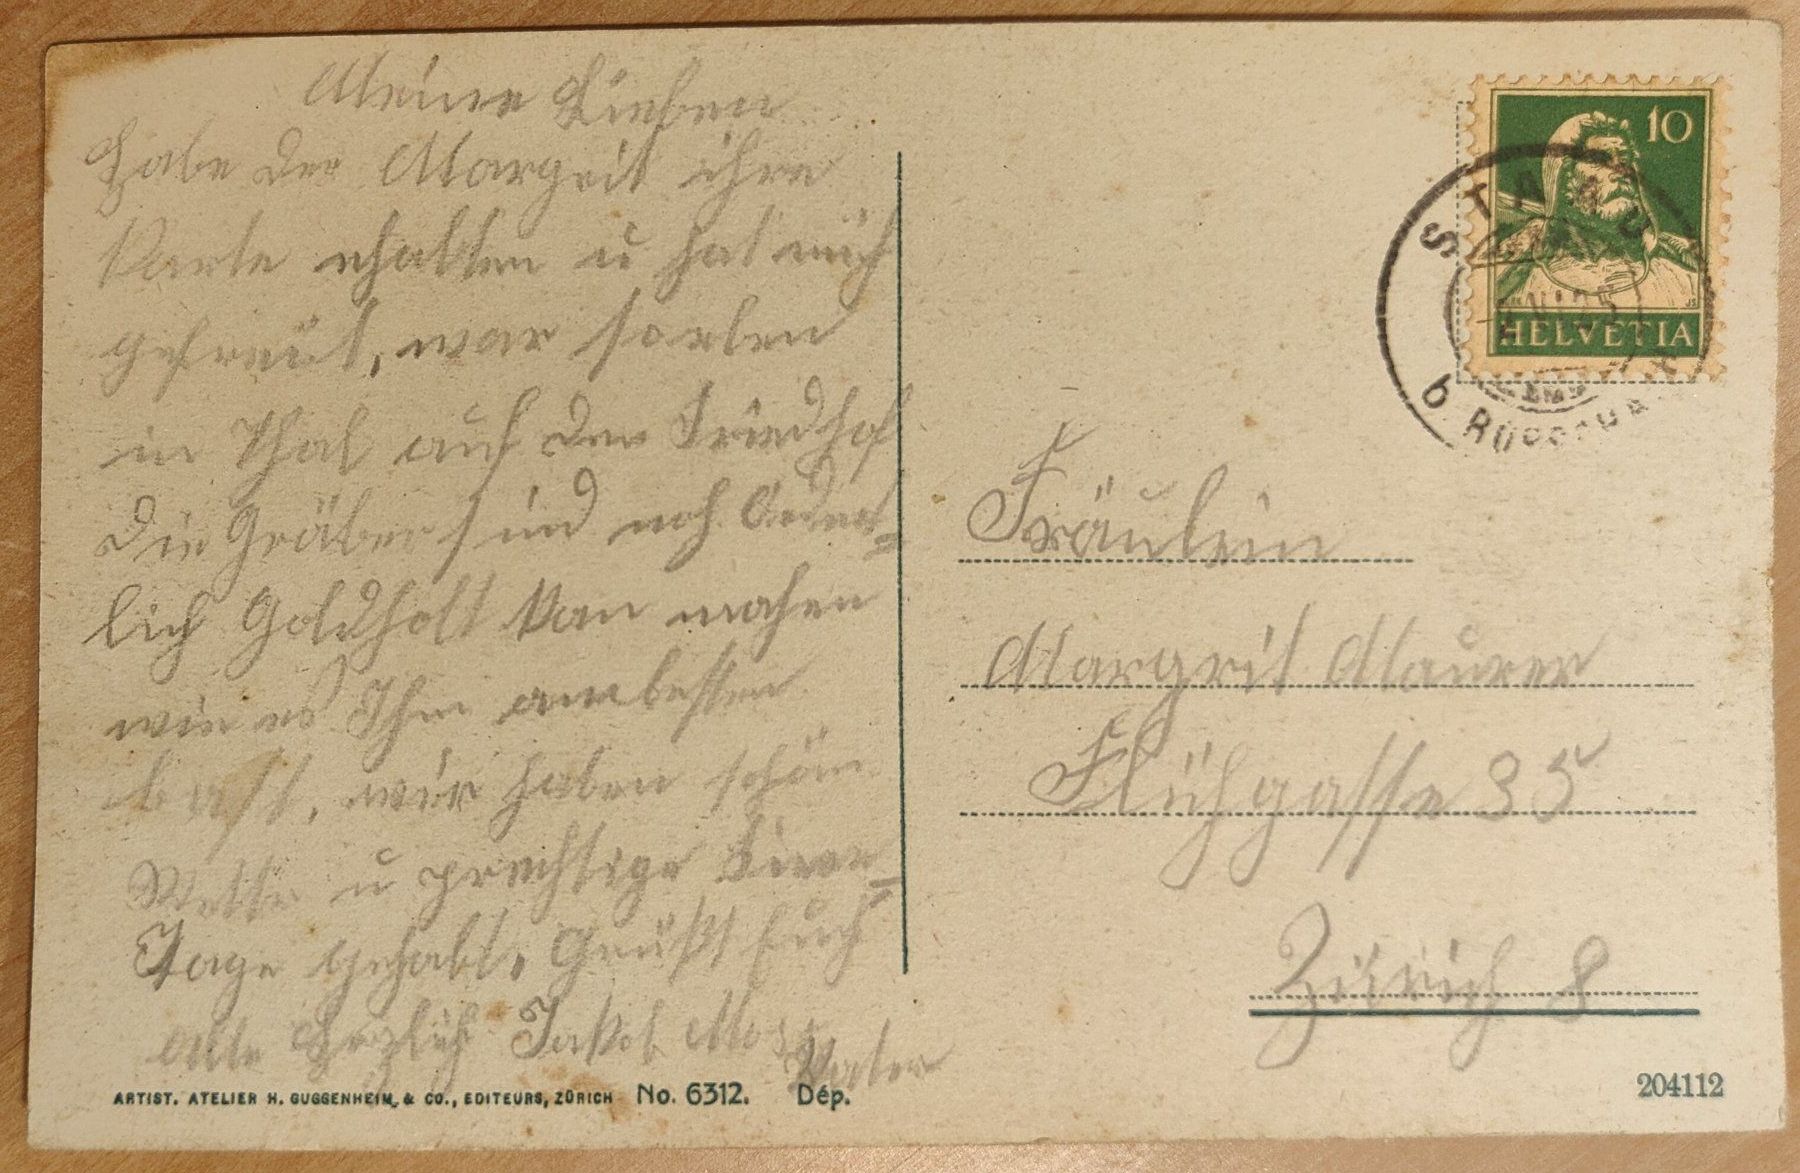 Meine Lieben
habe der Margreit ihre
Karte erhalten u hat mich
gefreut, war soeben
in Thal auf den Friedhof
die Gräber sind noch Ordent=
lich Goldholt kan machen
wie es Ihm am besten
bast, wir haben schön
Wetter u prechtige
Tage gehabt, Grüßt Euch
alle Herzlich Jakob
Vater
ARTIST. ATELIER H. GUGGENHEIM & CO., EDITEURS, ZÜRICH No. 6312. Dép.
10
HELVETIA
STAAD
b. RORSCHACH
Fräulein
Margrit Maurer
Flühgasse 35
Zürich 8
204112